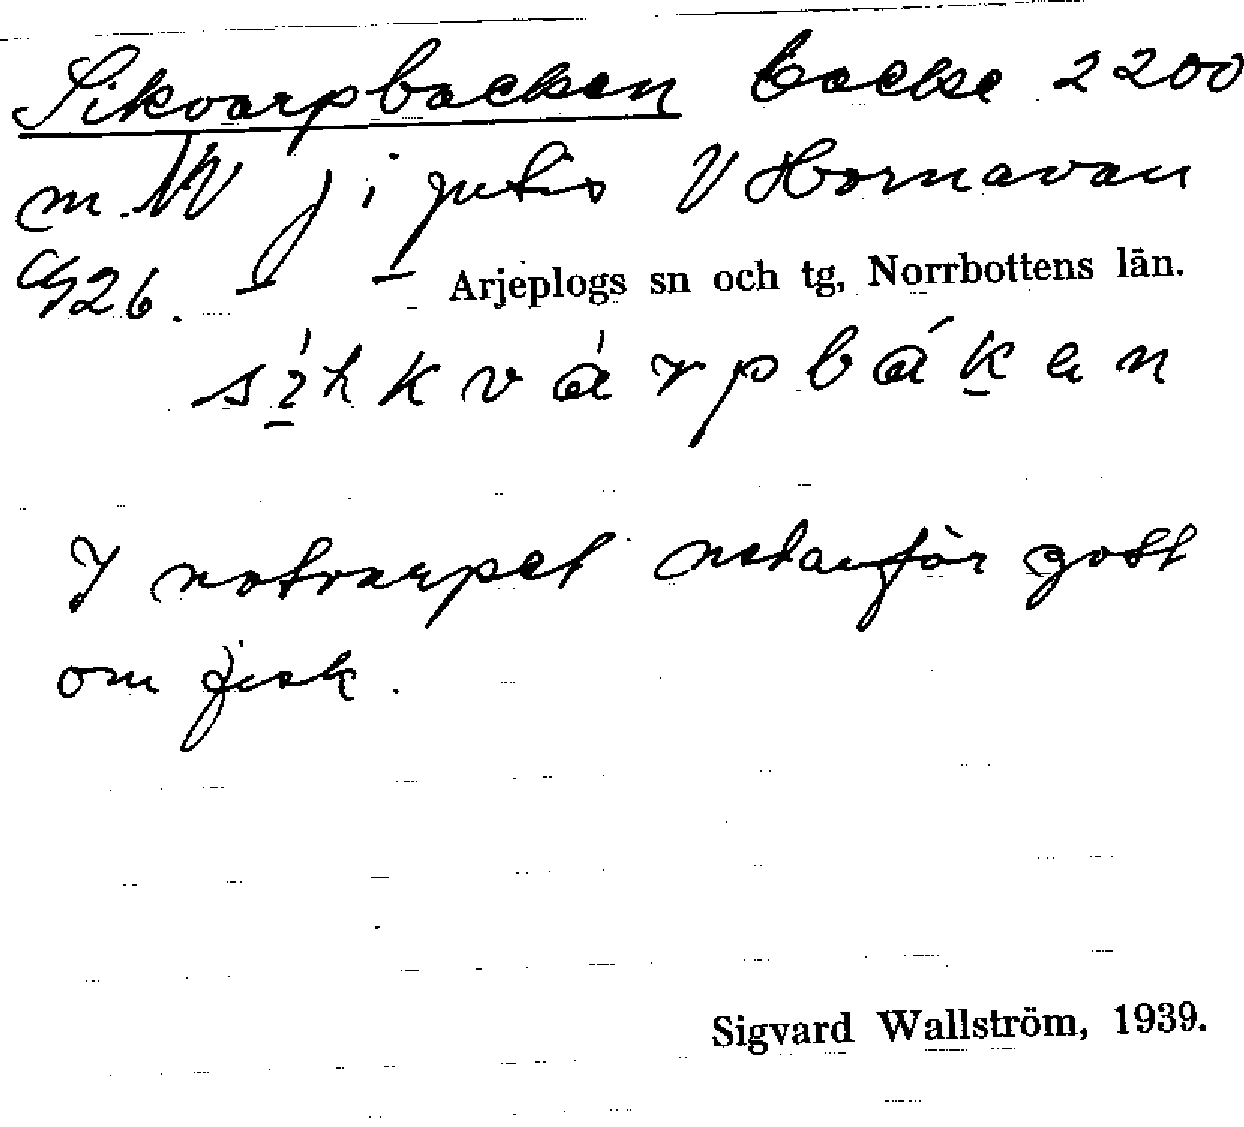 Sikvarpbacken backe 2200
m. NV J i V Hornavan
26. Arjeplogs sn och tg, Norrbottens län.
I notvarpet nedanför gott
om fisk.
Sigvard Wallström, 1939.